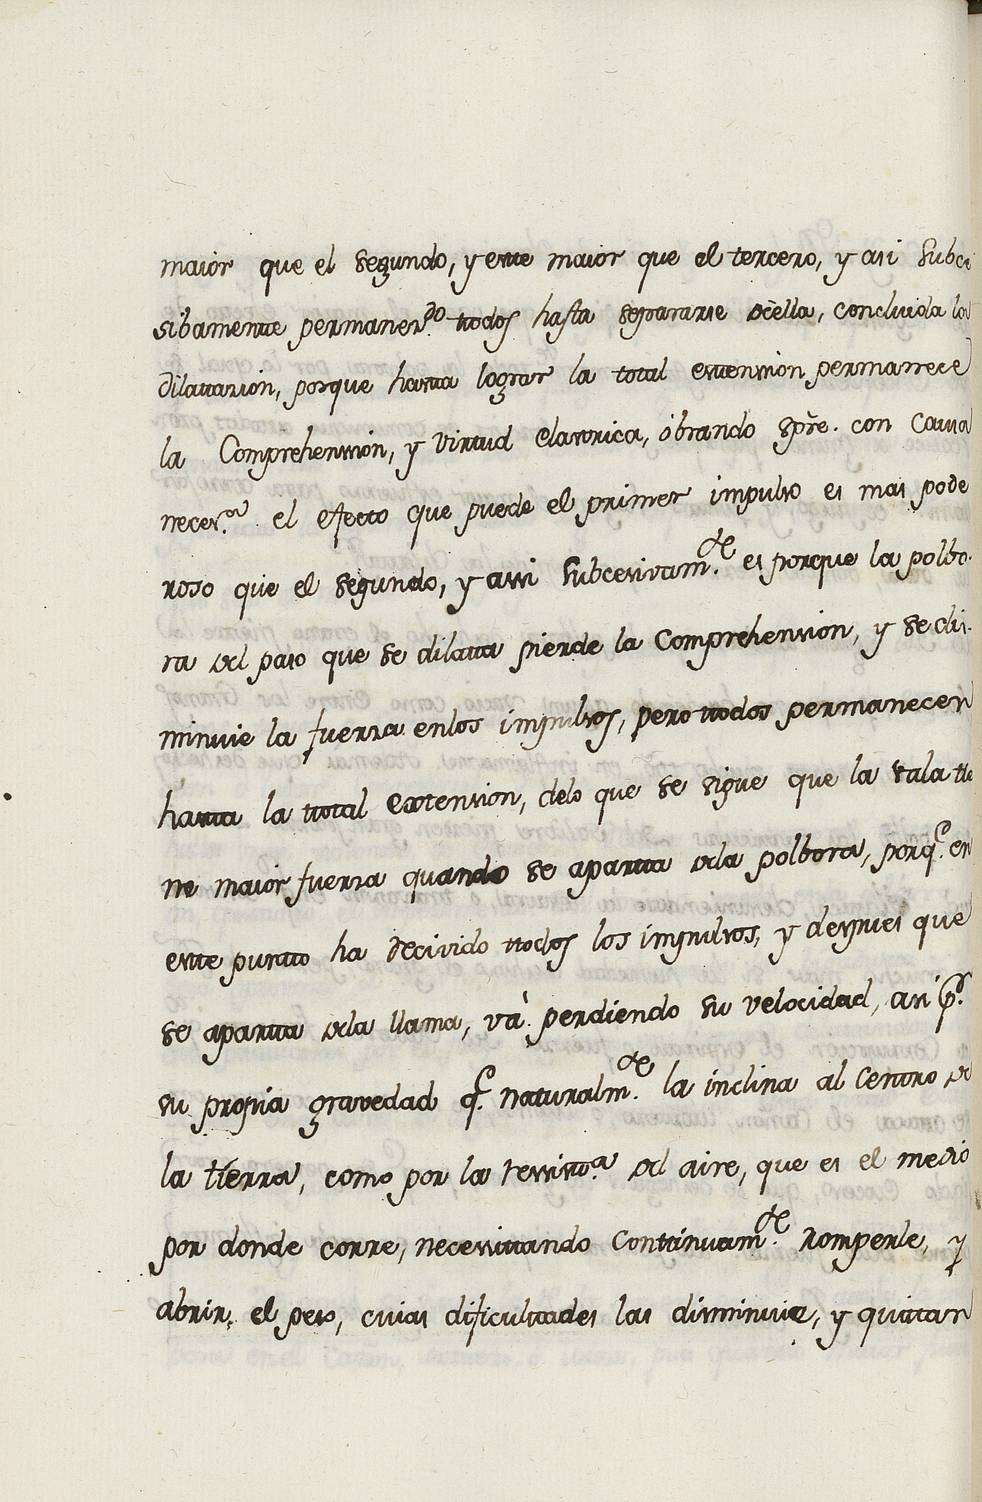 maior que el segundo, y este maior que el tercero, y asi subce
sibamente permanez.do ttodos hasta separarse dêlla, concluida la
dilattazion, porque hasta lograr la total estension permanece
la Comprehension, y virtud elastica, obrando spre. con Causa
neces.a el efecto que puede el primer impulso es mas pode
roso que el segundo, y assi subcesivam.te es porque la polbo-
ra del paso que se dilatta pierde la Comprehension, y se dis-
minuie la fuerza enlos impulsos, pero ttodos permanecen
hasta la ttotal extension, delo que se sigue que la vala tie
ne maior fuerza quando se apartta dela polbora, porq.e en
este puntto ha recivido ttodos los impulsos, y despues que
se apartta dela llama, và perdiendo su velocidad, asi p.r
su propia gravedad q.e naturalm.te la inclina al Centro de
la tierra, como por la resist.a del aire, que es el medio
por donde corre, necesittando Conttinuam.te Romperle, y
abrir, el peso, cuias dificulttades las disminuie, y quittan